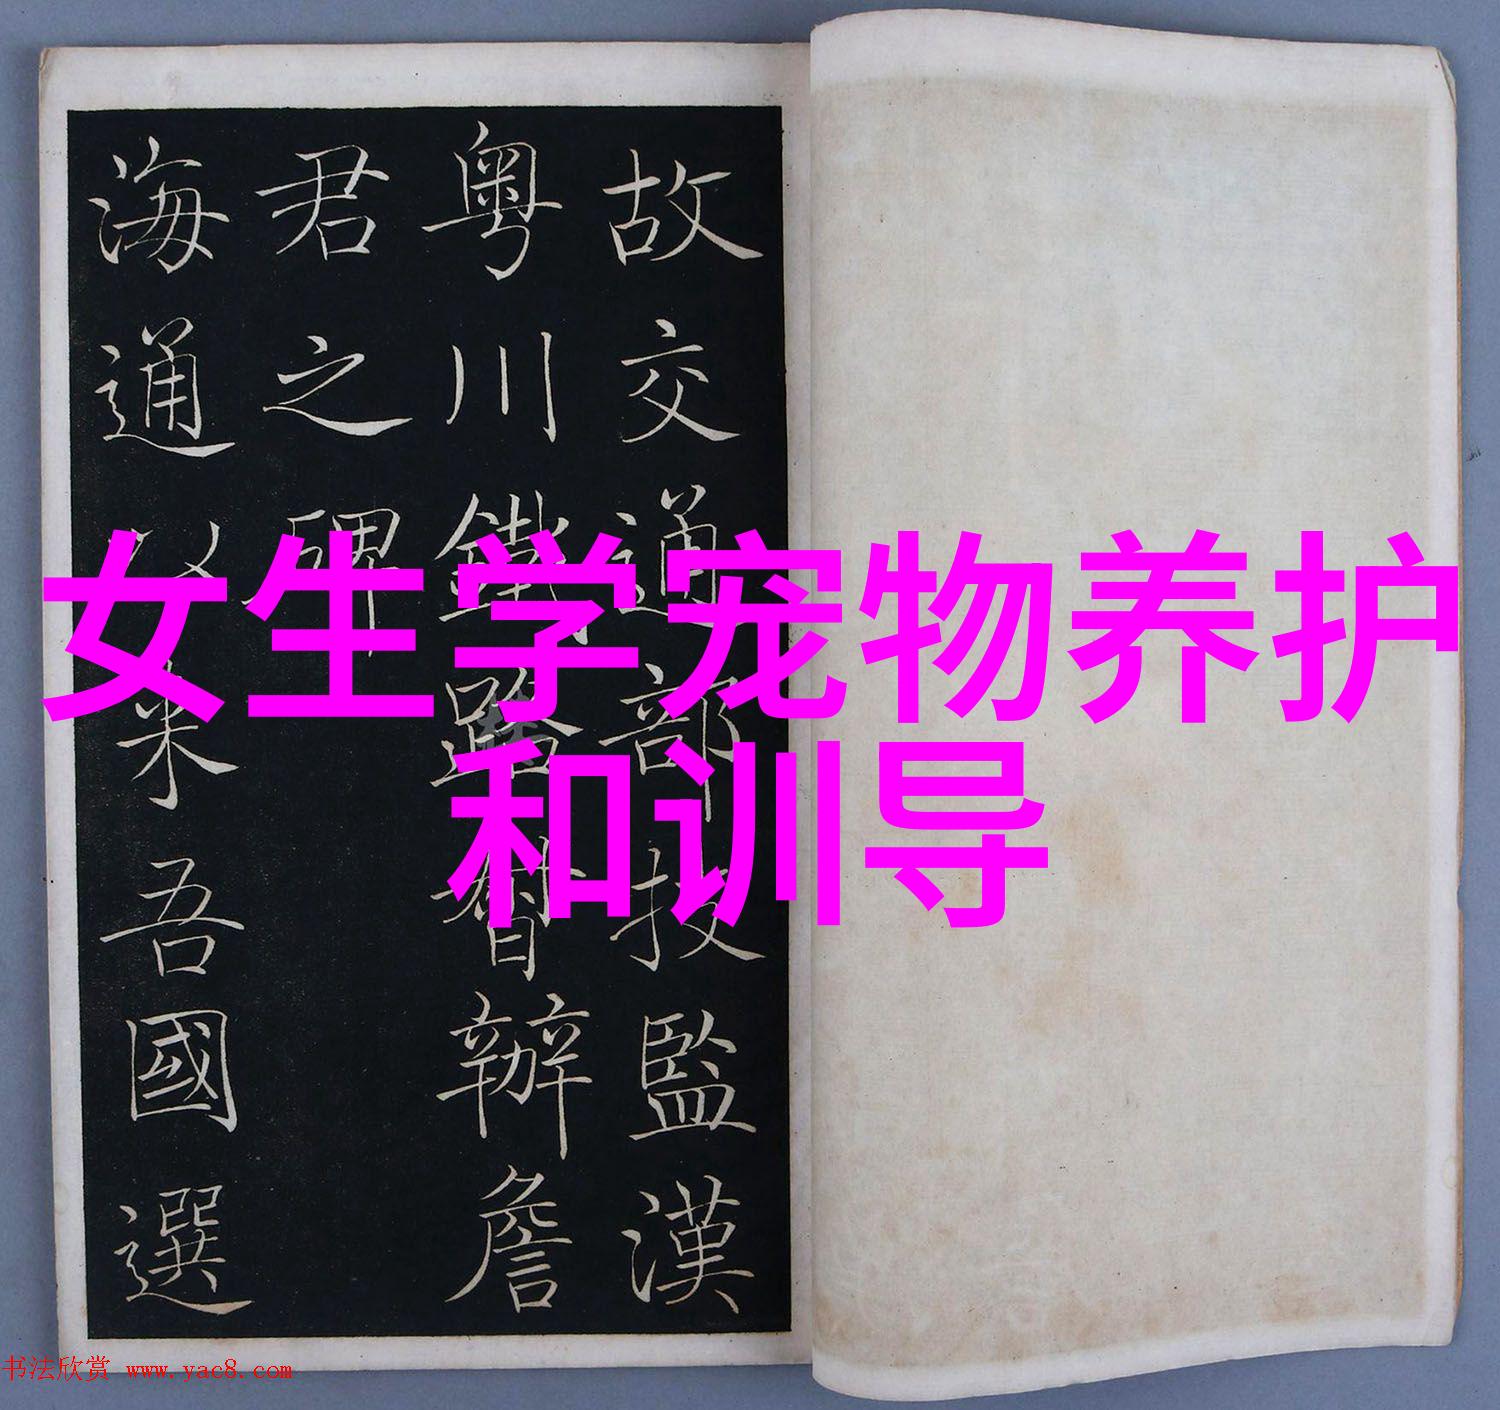 故交通部技監漢
粤川鐵路督辦詹
君之碑
海通以来吾國選
女生学宠物养护
和训导
书法欣赏 www.yac8.com